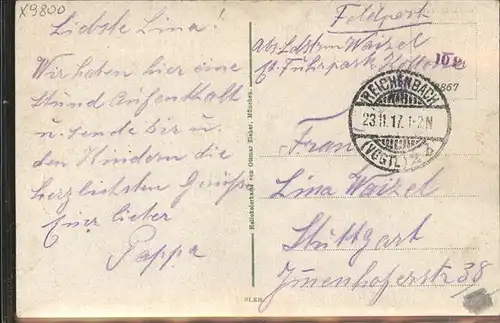 X9800
Liebste Lina!
Wir haben hier eine
Stund Aufenthalt
u. sende dir u.
den Kindern die
herzlichsten Grüße
Euer lieber
Pappa
Feldpost
Abs. Ldstrm Waizel
Fuhrpark
10 P
867
REICHENBACH
23.11.17. 1-2N
(VOGTL.)
Frau
Lina Waizel
Stuttgart
Imenhoferstr 38
Reliefsderband von Ottmar Zieher, München.
SLKB.